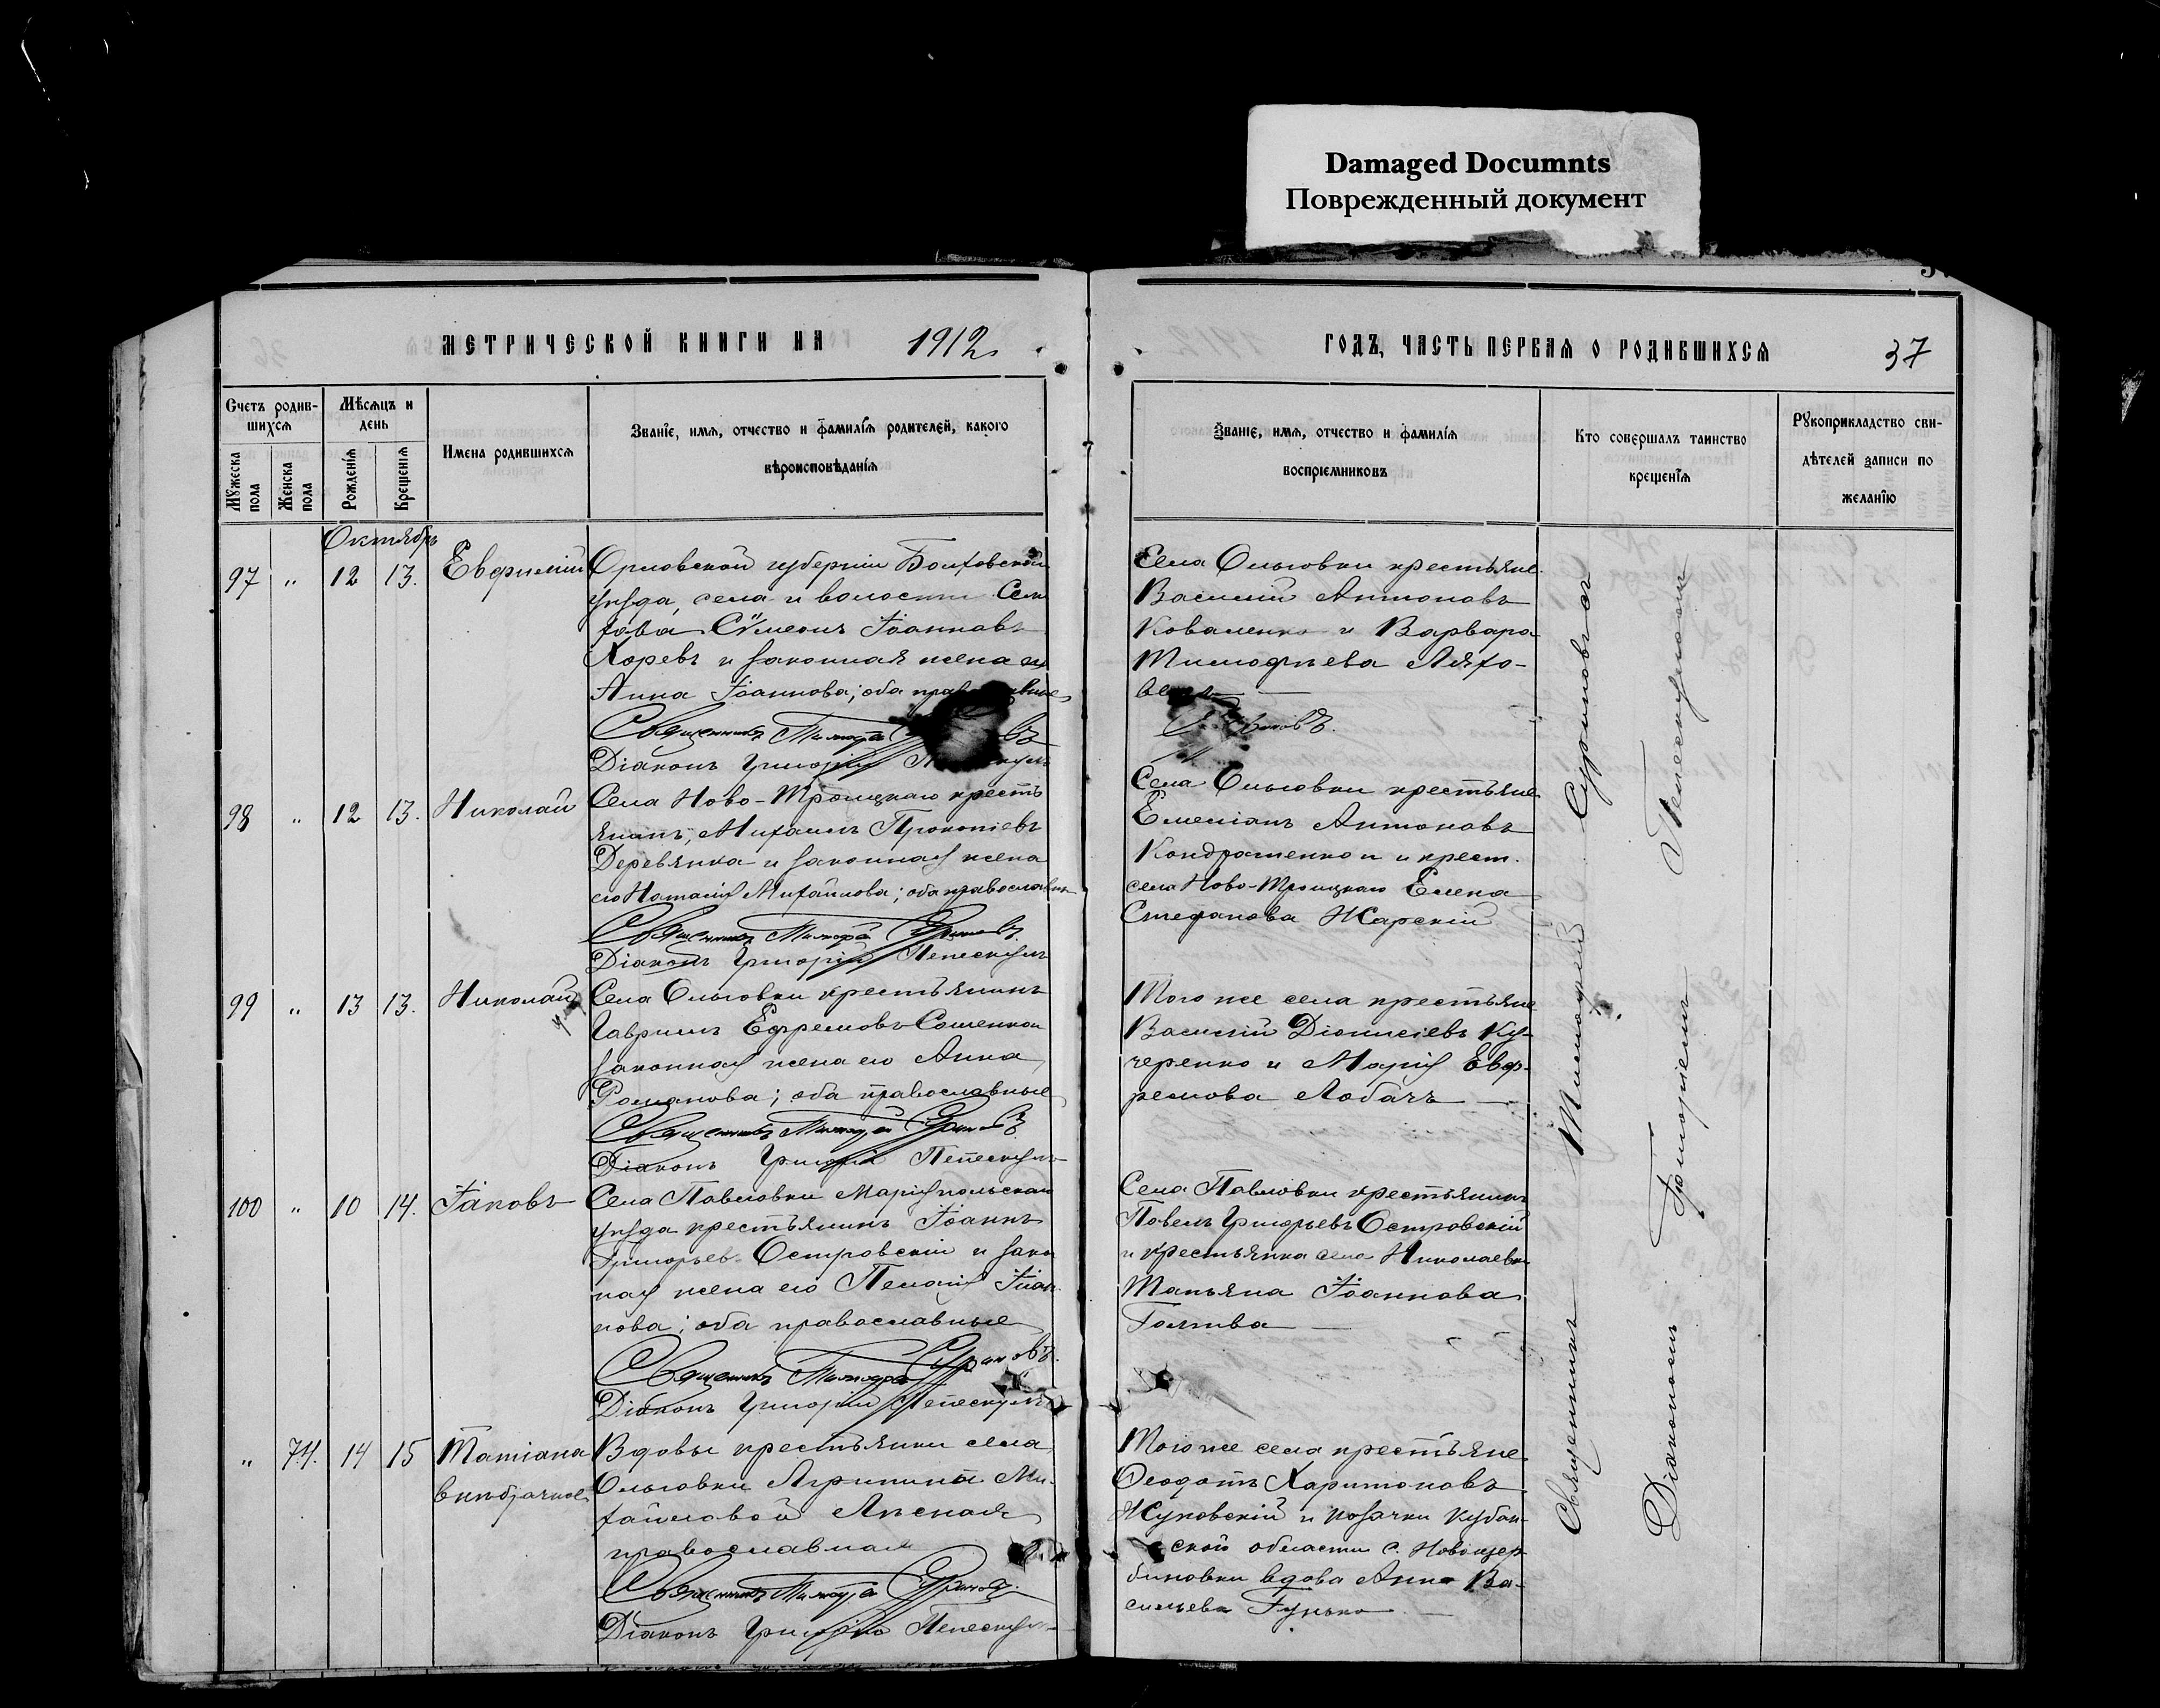 Damaged Documnts
Поврежденный документ
МЕТРИЧЕСКОЙ КНИГИ НА 1912
ГОДЪ, ЧАСТЬ ПЕРВАЯ О РОДИВШИХСЯ 37
Счетъ родив-
шихся
Мужеска пола
Женска пола
Мѣсяцъ и
день
Рожденія
Крещенія
Имена родившихся
Званіе, имя, отчество и фамилія родителей, какого
вѣроисповѣданія
Званіе, имя, отчество и фамилія
воспріемниковъ
Кто совершалъ таинство
крещенія
Рукоприкладство сви-
дѣтелей записи по
желанію
Октябрь
97 " 12 13. Евфимій
Орловской губерніи Болховского
уѣзда, села и волости
Сѵмеонъ Іоанновъ
Хоревъ и законная жена его
Анна Іоаннова; оба
Священникъ Тимофей
Діаконъ Григорій
Села Ольговки крестьяне
Василій Антоновъ
Коваленко и Варвара
Тимофѣева Ляхо-
98 " 12 13. Николай
Села Ново-Троицкаго кресть
янинъ, Михаилъ Прокопіевъ
Деревянка и законная жена
его Наталія Михайлова; оба православные
Священникъ Тимофей Суриновъ
Діаконъ Григорій Пепескулъ
Села Ольговки крестьяне
Емеліанъ Антоновъ
Кондратенко и крест.
села Ново-Троицкаго Елена
Стефанова Жарскій
99 " 13 13. Николай
Села Ольговки крестьянинъ
Гавриилъ Ефремовъ Сошенко и
законная жена его Анна
Романова; оба православные
Священникъ Тимофей Суриновъ
Діаконъ Григорій Пепескулъ
Того же села крестьяне
Василій Діонисіевъ Ку-
черенко и Марія Евф-
ремова Лобачъ
100 " 10 14. Іаковъ
Села Павловки Маріупольскаго
уѣзда крестьянинъ Іоаннъ
Григорьев Островскій и зако
ная жена его Пелагія Іоан
нова; оба православные
Священникъ Тимофей Суриновъ.
Діаконъ Григорій Пепескулъ
Села Павловки крестьянинъ
Павелъ Григорьевъ Островскій
и крестьянка села Николаевки
Татьяна Іоаннова
Голтва
" 74. 14 15 Татіана
внѣбрачное
Вдовы крестьянки села
Ольговки Агрипины Ми-
хайловой
православная
Священникъ Тимофей Суриновъ.
Діаконъ Григорій Пепескулъ
Того же села крестьяне
Феодотъ Харитоновъ
Жуковскій и козачки Кубан-
ской области с. Новощер
биновки вдова Анна Ва-
сильева Гунько
Священникъ Тимофей Суриновъ
Діакономъ Григоріемъ Пепескуломъ